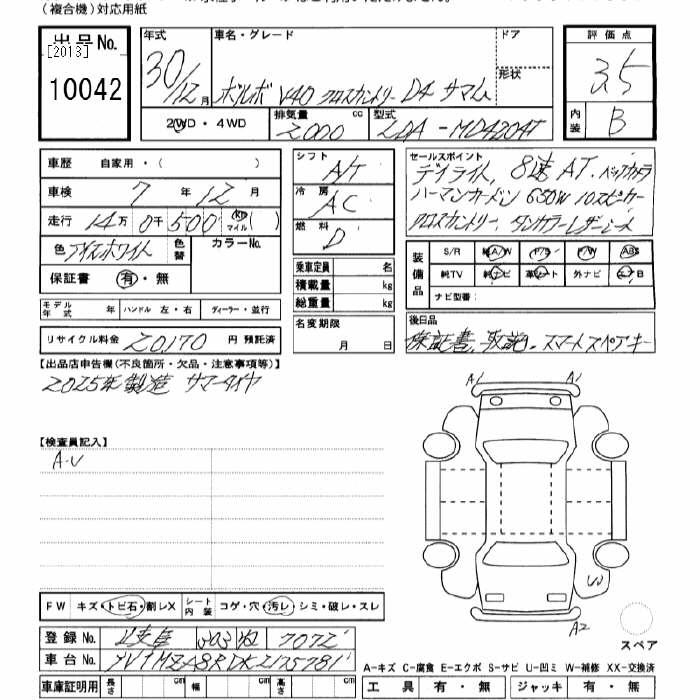 (複合機)対応用紙
出品No.
[2013]
10042
年式
30/12月
車名・グレード
ボルボ V40 クロスカントリー D4 サマム
ドア
形状
評価点
3.5
内装
B
2WD・4WD
排気量
2000 cc
型式
LDA-MD4204T
車歴 自家用・( )
車検 7年12月
走行 14万0千500 (km マイル)
色 アイスホワイト
色替
カラーNo.
保証書 有・無
モデル年式 年
ハンドル 左・右
ディーラー・並行
リサイクル料金 20,170 円 預託済
シフト A/T
冷房 AC
燃料 D
乗車定員 名
積載量 kg
総重量 kg
名変期限
月 日
セールスポイント
デイライト、8速AT、バックカメラ
ハーマンカードン 650W 10スピーカー
クロスカントリー、タンカラーレザーシート
装備品
S/R 純A/W P/S P/W ABS
純TV 純ナビ 革シート 外ナビ エアB
ナビ型番:
後日品
保証書、取説、スマートスペアキー
【出品店申告欄(不良箇所・欠品・注意事項等)】
2025年製造 サマータイヤ
【検査員記入】
A・U
A1 A1
W
A2
スペア
FW キズ・トビ石・割レX
シート内装 コゲ・穴・汚レ・シミ・破レ・スレ
登録No. 岐阜 303 ね 7072
車台No. YV1MZA8RDK2175781
車庫証明用 長さ cm 幅 cm 高さ cm
A-キズ C-腐食 E-エクボ S-サビ U-凹ミ W-補修 XX-交換済
工具 有・無 ジャッキ 有・無